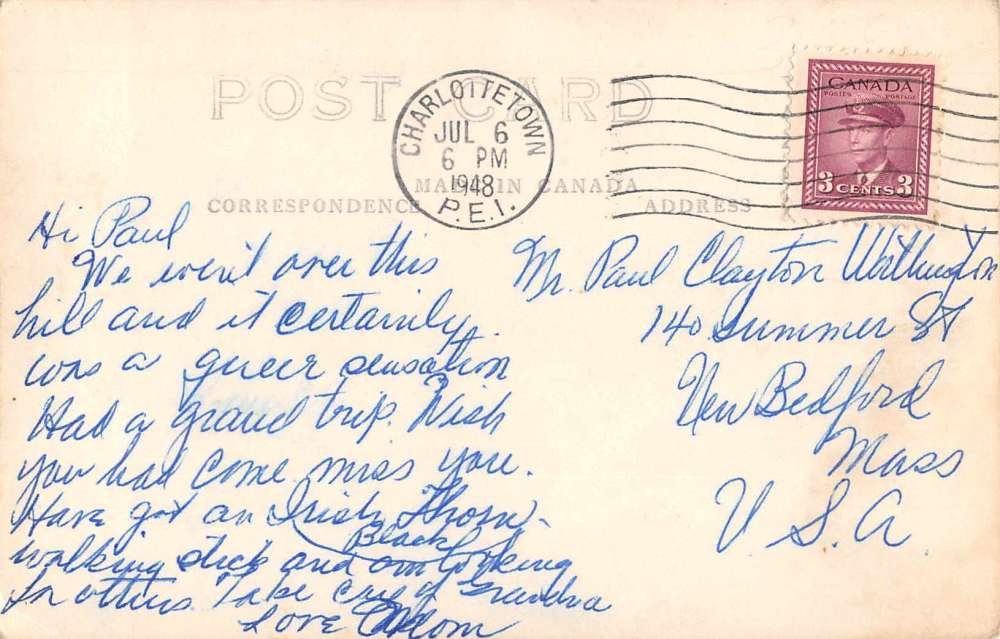 POST CARD
CHARLOTTETOWN
JUL 6
6 PM
1948
P.E.I.
CANADA
POSTES POSTAGE
3 CENTS 3
MADE IN CANADA
CORRESPONDENCE
ADDRESS
Hi Paul
We went over this
hill and it certainly
was a queer sensation
Had a grand trip. Wish
you had come miss you.
Have got an Irish Thorn
Black
walking stick and am looking
for others. Take care of Grandma
Love Mom
Mr. Paul Clayton Worthington
140 Summer St
New Bedford
Mass
U.S.A.